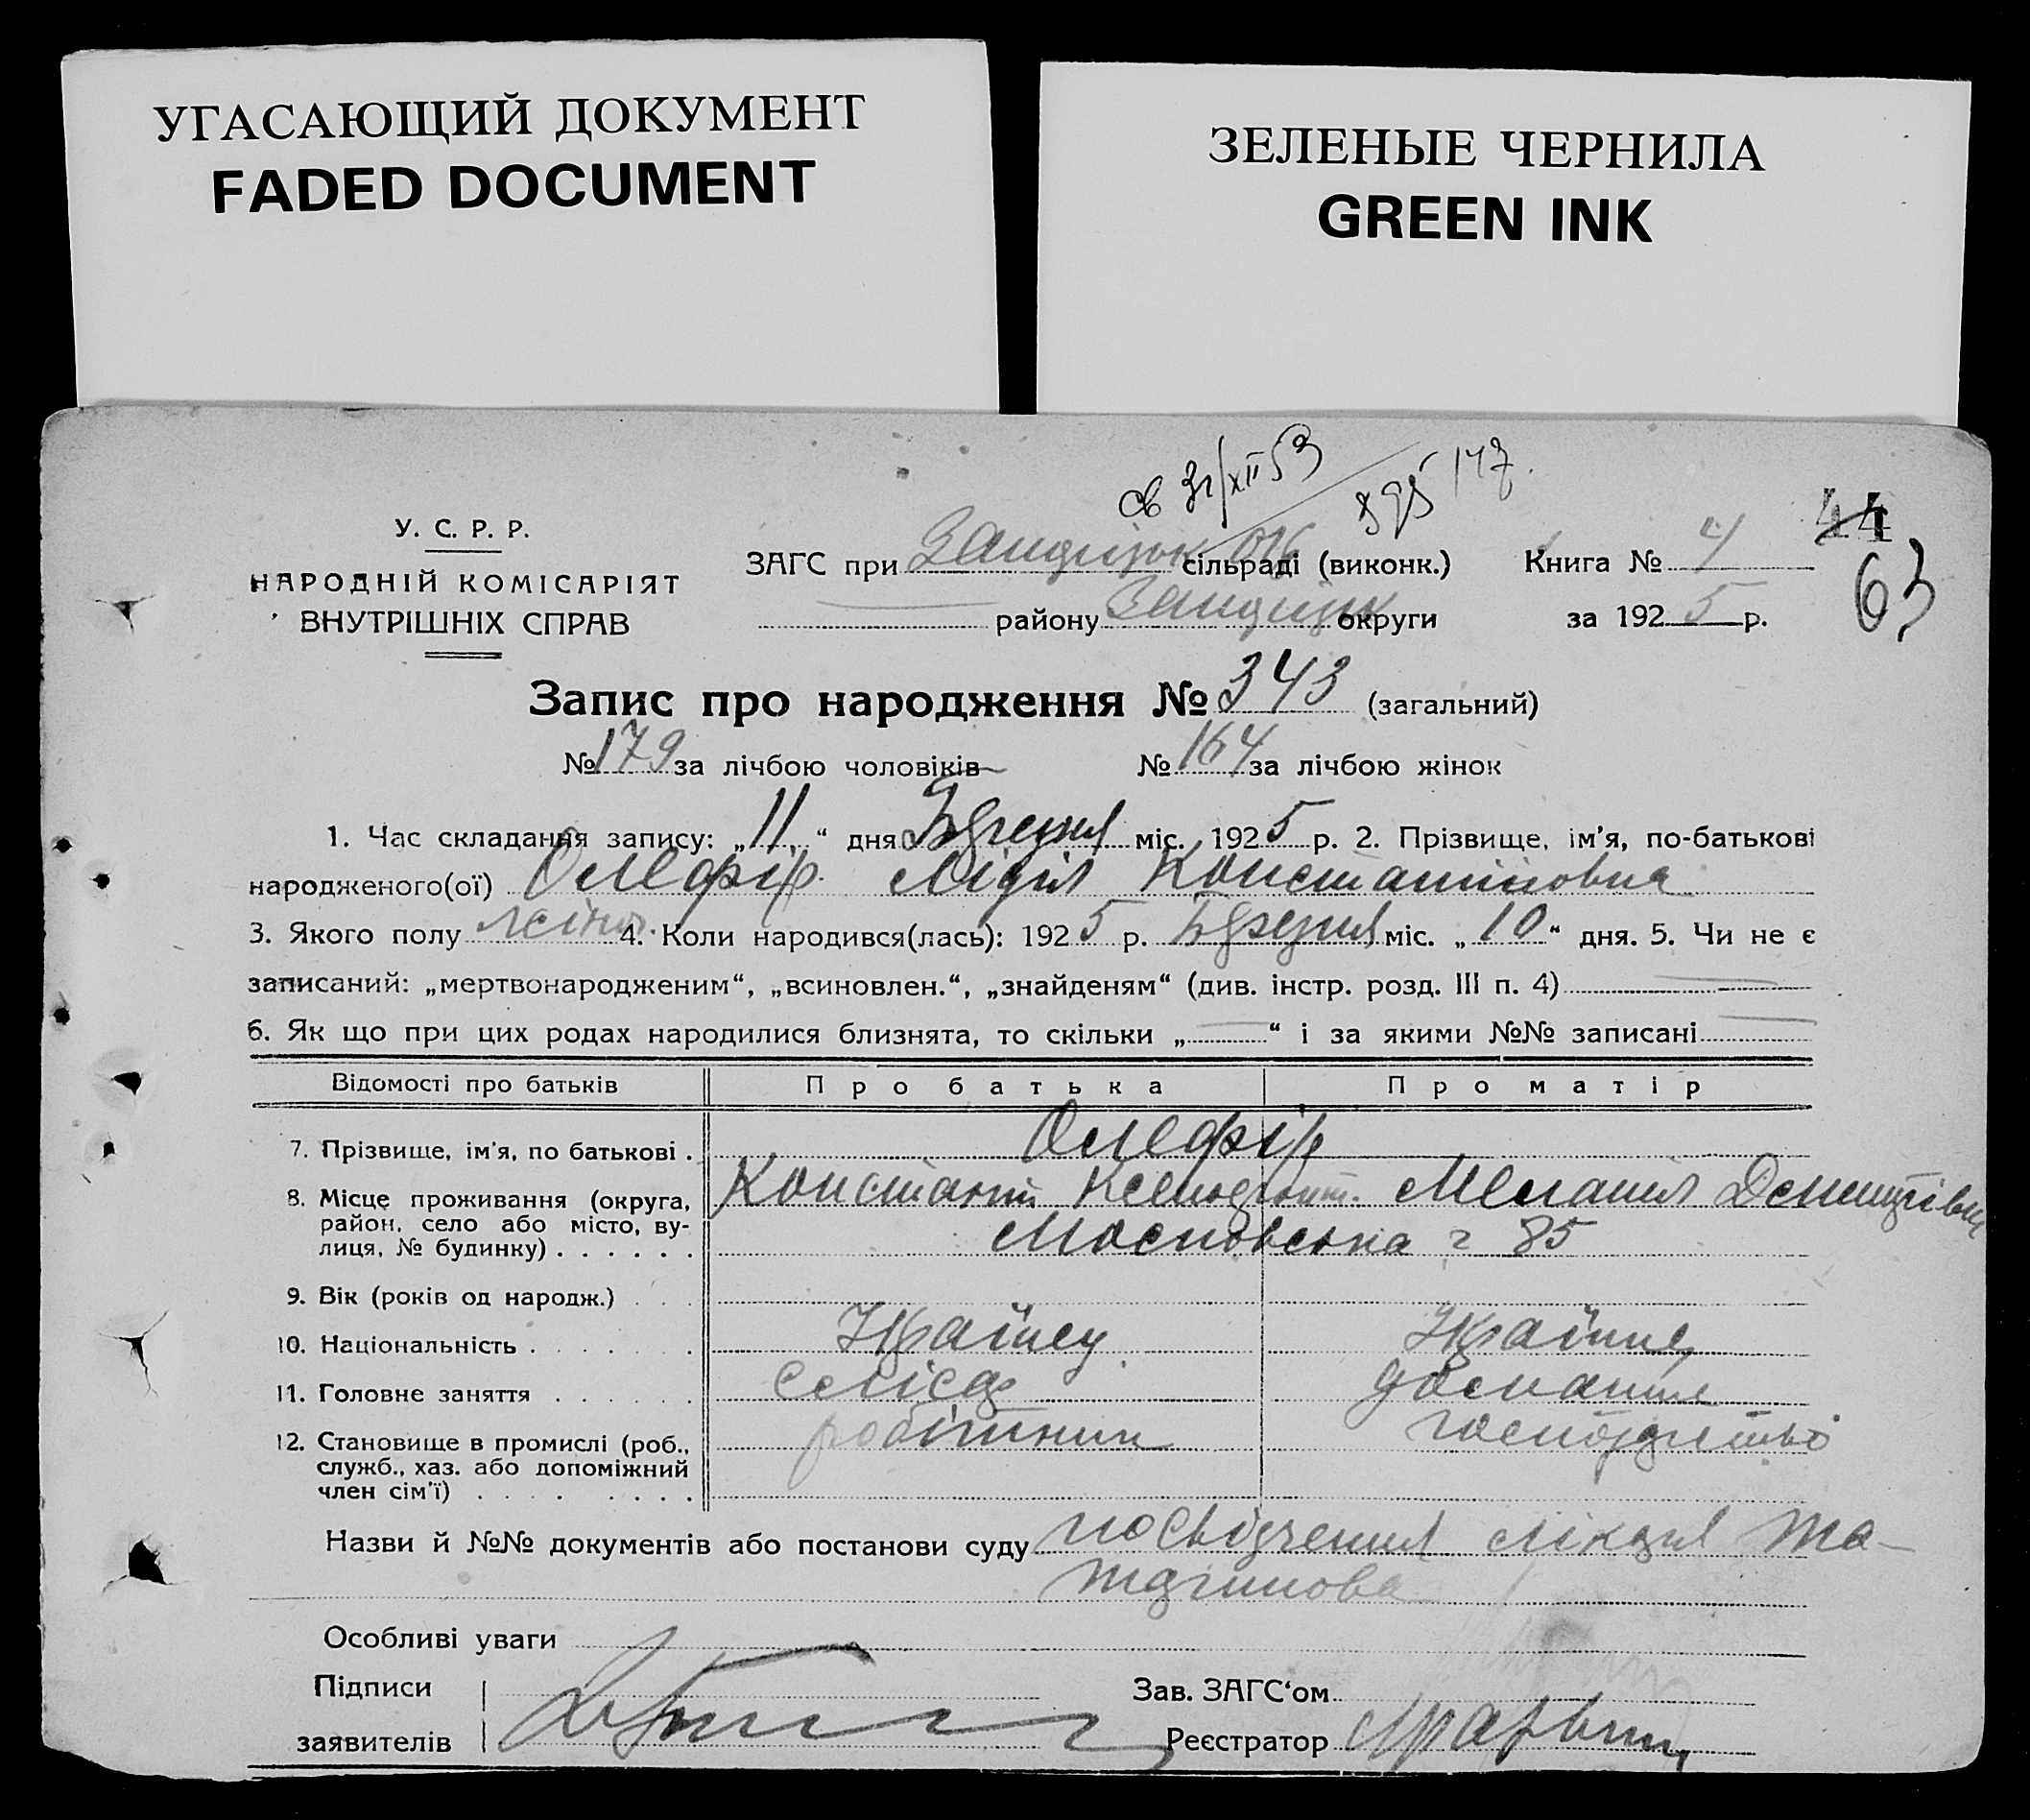 УГАСАЮЩИЙ ДОКУМЕНТ
FADED DOCUMENT
ЗЕЛЕНЫЕ ЧЕРНИЛА
GREEN INK
св 31/XII 53
147.
44
63
У. С. Р. Р.
НАРОДНІЙ КОМІСАРІЯТ
ВНУТРІШНІХ СПРАВ
ЗАГС при сільраді (виконк.)
району округи
Книга № 4
за 1925 р.
Запис про народження № 343 (загальний)
№ 179 за лічбою чоловіків № 164 за лічбою жінок
1. Час складання запису: „11“ дня Березня міс. 1925 р. 2. Прізвище, ім'я, по-батькові
народженого(ої) Олефір Лідія Константіновна
3. Якого полу жіноч. 4. Коли народився(лась): 1925 р. Березня міс. „10“ дня. 5. Чи не є
записаний: „мертвонародженим“, „всиновлен.“, „знайденям“ (див. інстр. розд. III п. 4)
6. Як що при цих родах народилися близнята, то скільки „—“ і за якими №№ записані
Відомості про батьків Про батька Про матір
7. Прізвище, ім'я, по батькові . Олефір
Меланія
8. Місце проживання (округа,
район, село або місто, ву-
лиця, № будинку) . . . . . . Московська 85
9. Вік (років од народж.) . . .
10. Національність . . . . . . . Україн
11. Головне заняття . . . . . . домашнє
12. Становище в промислі (роб., робітник господарство
служб., хаз. або допоміжний
член сім'ї) . . . . . . . .
Назви й №№ документів або постанови суду посвідчення лікаря
Особливі уваги
Підписи
заявителів
Зав. ЗАГС'ом
Реєстратор